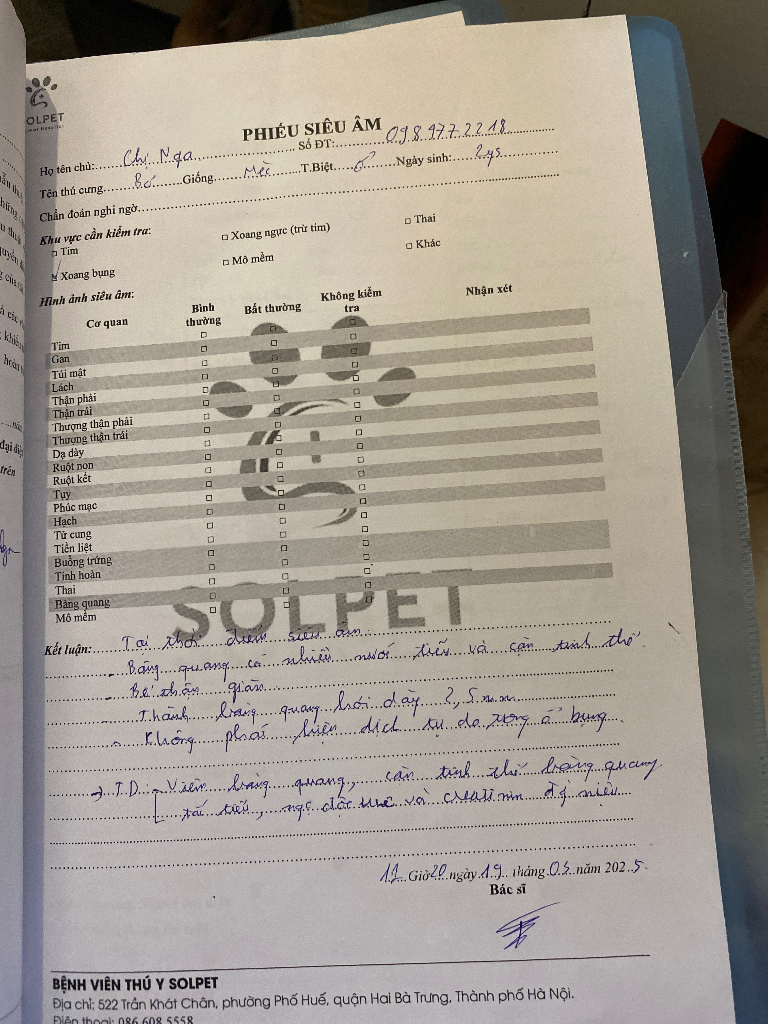 OLPET
PHIẾU SIÊU ÂM
Họ tên chủ: Chị Nga Số ĐT: 098.977.2218
Tên thú cưng Bơ Giống Mèo T.Biệt ♂ Ngày sinh: 2ys
Chẩn đoán nghi ngờ
Khu vực cần kiểm tra:
□ Tim □ Xoang ngực (trừ tim) □ Thai
☑ Xoang bụng □ Mô mềm □ Khác
Hình ảnh siêu âm:
Cơ quan Bình thường Bất thường Không kiểm tra Nhận xét
Tim
Gan
Túi mật
Lách
Thận phải
Thận trái
Thượng thận phải
Thượng thận trái
Dạ dày
Ruột non
Ruột kết
Tụy
Phúc mạc
Hạch
Tử cung
Tiền liệt
Buồng trứng
Tinh hoàn
Thai
Bàng quang
Mô mềm
SOLPET
Kết luận: Tại thời điểm siêu âm
- Bàng quang có nhiều nước tiểu và cặn tinh thể
- Bể thận giãn
- Thành bàng quang hơi dày 2,5mm
- Không phát hiện dịch tự do trong ổ bụng
→ T.D: - Viêm bàng quang, cặn tinh thể bàng quang
tắc tiểu, ngộ độc ure và creatinin
11 Giờ 20 ngày 19 tháng 05 năm 2025
Bác sĩ
BỆNH VIỆN THÚ Y SOLPET
Địa chỉ: 522 Trần Khát Chân, phường Phố Huế, quận Hai Bà Trưng, Thành phố Hà Nội.
Điện thoại: 086 608 5558